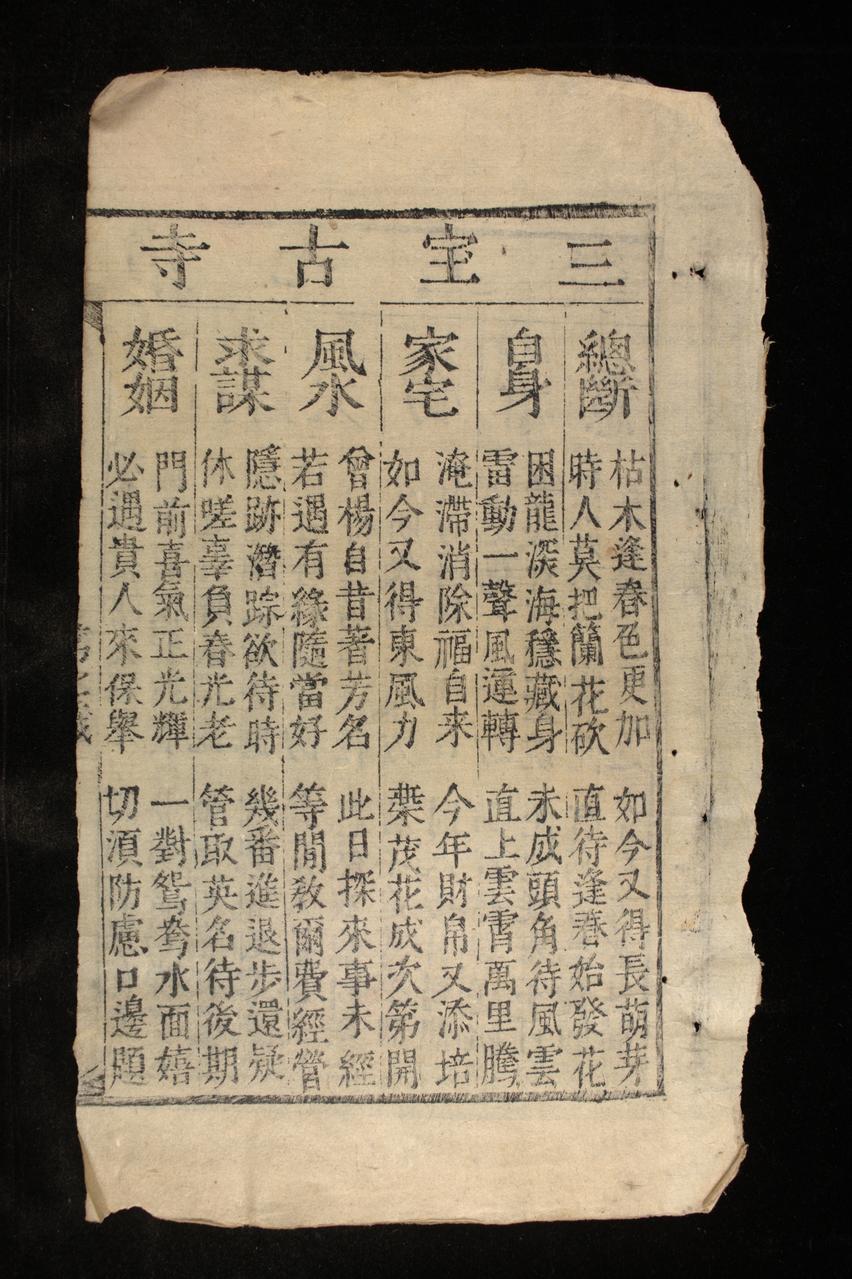 三宝古寺
總斷
枯木逢春色更加 如今又得長萌芽
時人莫把蘭花砍 直待逢春始發花
自身
困龍深海穩藏身 未成頭角待風雲
雷動一聲風運轉 直上雲霄萬里騰
家宅
淹滯消除福自来 今年財帛又添培
如今又得東風力 葉茂花成次第開
風水
曾楊自昔著芳名 此日探來事未經
若遇有緣隨當好 等閒教爾費經營
求謀
隱跡潛踪欲待時 幾番進退步還疑
休嗟辜負春光老 管取英名待後期
婚姻
門前喜氣正光輝 一對鴛鴦水面嬉
必遇貴人來保舉 切須防慮口邊題